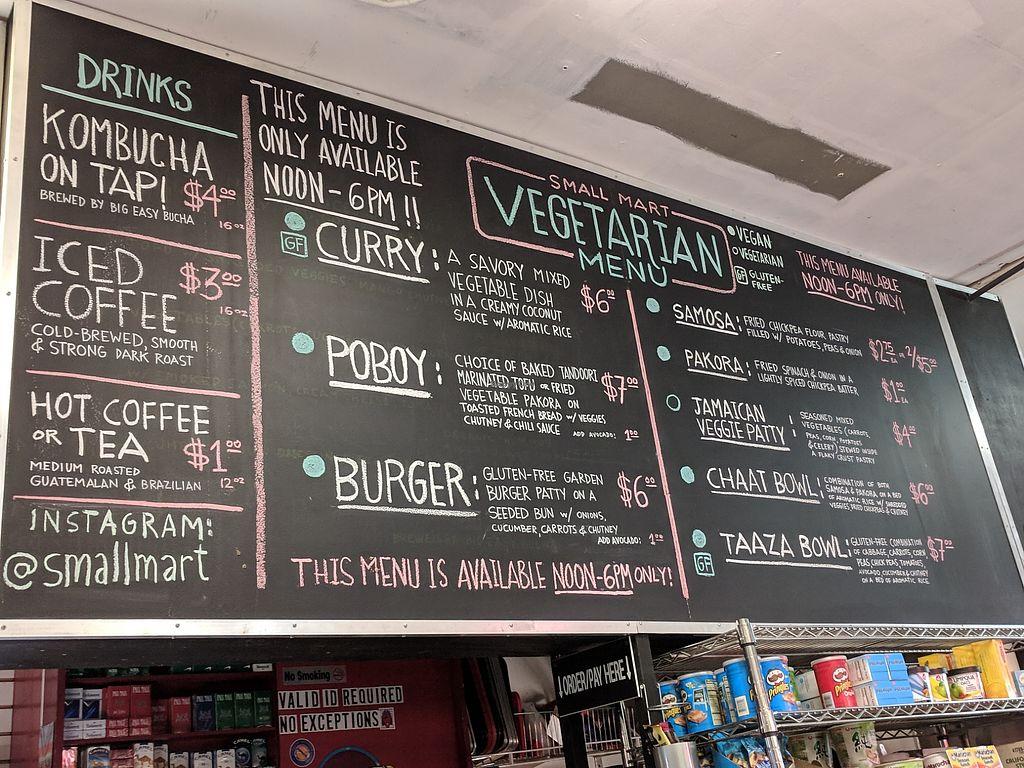 DRINKS
KOMBUCHA
ON TAP! $4.00
BREWED BY BIG EASY BUCHA 16 oz
ICED
COFFEE $3.00
16 oz
COLD-BREWED, SMOOTH
& STRONG DARK ROAST
HOT COFFEE
OR TEA $1.00
MEDIUM ROASTED
GUATEMALAN & BRAZILIAN 12 oz
INSTAGRAM:
@smallmart
THIS MENU IS
ONLY AVAILABLE
NOON-6PM!!
SMALL MART
VEGETARIAN
MENU
VEGAN
VEGETARIAN
GF GLUTEN-
FREE
THIS MENU AVAILABLE
NOON-6PM ONLY!
GF CURRY: A SAVORY MIXED
VEGETABLE DISH
IN A CREAMY COCONUT
SAUCE W/ AROMATIC RICE
$6.00
POBOY: CHOICE OF BAKED TANDOORI
MARINATED TOFU OR FRIED
VEGETABLE PAKORA ON
TOASTED FRENCH BREAD W/ VEGGIES
CHUTNEY & CHILI SAUCE
$7.00
ADD AVOCADO: 1.00
BURGER: GLUTEN-FREE GARDEN
BURGER PATTY ON A
SEEDED BUN W/ ONIONS,
CUCUMBER, CARROTS & CHUTNEY
$6.00
ADD AVOCADO: 1.00
THIS MENU IS AVAILABLE NOON-6PM ONLY!
SAMOSA: FRIED CHICKPEA FLOUR PASTRY
FILLED W/ POTATOES, PEAS & ONION
$2.75 EA OR 2/$5.00
PAKORA: FRIED SPINACH & ONION IN A
LIGHTLY SPICED CHICKPEA BATTER
$1.00 EA
JAMAICAN
VEGGIE PATTY: SEASONED MIXED
VEGETABLES (CARROTS,
PEAS, CORN, POTATOES
& CELERY) STEWED INSIDE
A FLAKY CRUST PASTRY
$4.00
CHAAT BOWL: COMBINATION OF BOTH
SAMOSA & PAKORA ON A BED
OF AROMATIC RICE W/ SHREDDED
VEGGIES, FRIED CHICKPEAS & CHUTNEY
$6.00
GF TAAZA BOWL: GLUTEN-FREE COMBINATION
OF CABBAGE, CARROTS, CORN,
PEAS, CHICK PEAS, TOMATOES,
AVOCADO, CUCUMBER & CHUTNEY
ON A BED OF AROMATIC RICE.
$7.00
No Smoking
VALID ID REQUIRED
NO EXCEPTIONS
ORDER/PAY HERE
Pringles
Pringles
Pringles
Maruchan